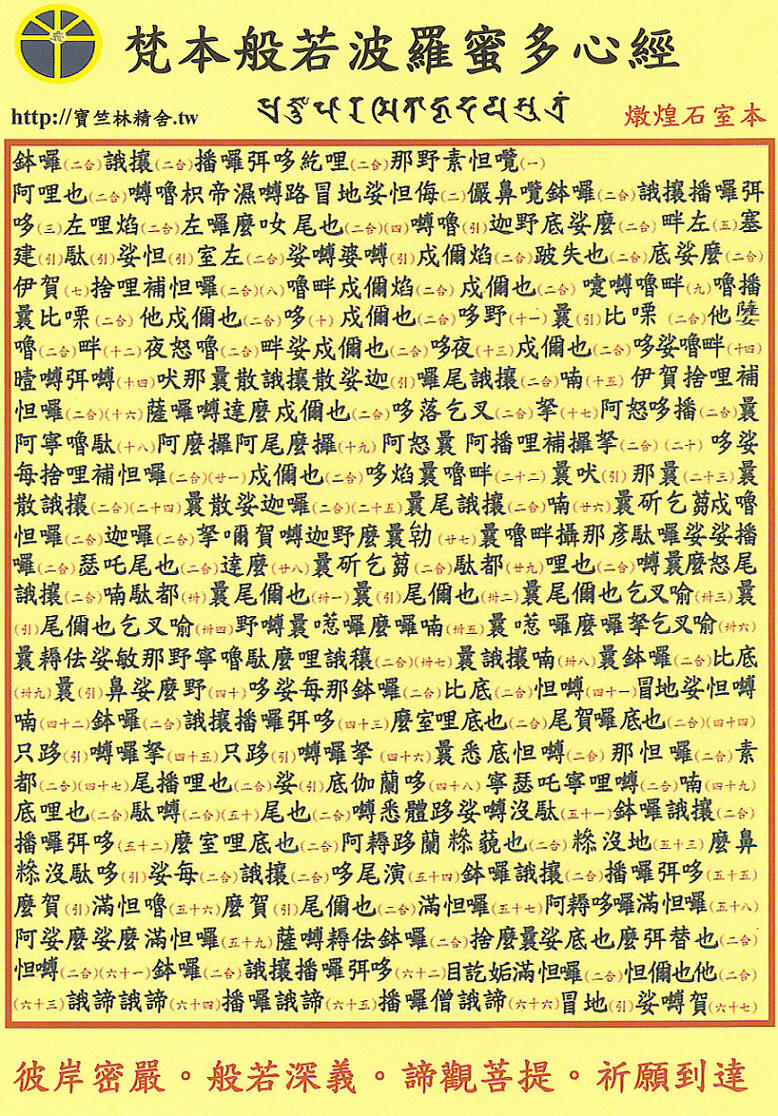 梵本般若波羅蜜多心經
http://寶竺林精舍.tw
燉煌石室本
鉢囉(二合)誐攘(二合)播囉弭哆紇哩(二合)那野素怛囕(一)
阿哩也(二合)嚩嚕枳帝濕嚩路冒地娑怛侮(二)儼鼻囕鉢囉(二合)誐攘播囉弭
哆(三)左哩焰(二合)左囉麼㚢尾也(二合)(四)嚩嚕(引)迦野底娑麼(二合)畔左(五)塞
建(引)駄(引)娑怛(引)室左(二合)娑嚩婆嚩(引)戍儞焰(二合)跛失也(二合)底娑麼(二合)
伊賀(七)捨哩補怛囉(二合)(八)嚕畔戍儞焰(二合)戍儞也(二合)嚏嚩嚕畔(九)嚕播
曩比㗚(二合)他戍儞也(二合)哆(十)戍儞也(二合)哆野(十一)曩(引)比㗚(二合)他㜸
嚕(二合)畔(十二)夜怒嚕(二合)畔娑戍儞也(二合)哆夜(十三)戍儞也(二合)哆娑嚕畔(十四)
曀嚩弭嚩(十四)吠那曩散誐攘散娑迦(引)囉尾誐攘(二合)喃(十五)伊賀捨哩補
怛囉(二合)(十六)薩囉嚩達麼戍儞也(二合)哆落乞叉(二合)拏(十七)阿怒哆播(二合)曩
阿寧嚕駄(十八)阿麼攞阿尾麼攞(十九)阿怒曩阿播哩補攞拏(二合)(二十)哆娑
每捨哩補怛囉(二合)(廿一)戍儞也(二合)哆焰曩嚕畔(二十二)曩吠(引)那曩(二十三)曩
散誐攘(二合)(二十四)曩散娑迦囉(二合)(二十五)曩尾誐攘(二合)喃(廿六)曩斫乞蒭戍嚕
怛囉(二合)迦囉(二合)拏嘝賀嚩迦野麼曩勄(廿七)曩嚕畔攝那彥駄囉娑娑播
囉(二合)瑟吒尾也(二合)達麼(廿八)曩斫乞蒭(二合)駄都(廿九)哩也(二合)嚩曩麼怒尾
誐攘(二合)喃駄都(卅)曩尾儞也(卅一)曩(引)尾儞也(卅二)曩尾儞也乞叉喻(卅三)曩
(引)尾儞也乞叉喻(卅四)野嚩曩𠻴囉麼囉喃(卅五)曩𠻴囉麼囉拏乞叉喻(卅六)
曩耨佉娑敏那野寧嚕駄麼哩誐穰(二合)(卅七)曩誐攘喃(卅八)曩鉢囉(二合)比底
(卅九)曩(引)鼻娑麼野(四十)哆娑每那鉢囉(二合)比底(二合)怛嚩(四十一)冒地娑怛嚩
喃(四十二)鉢囉(二合)誐攘播囉弭哆(四十三)麼室哩底也(二合)尾賀囉底也(二合)(四十四)
只跢(引)嚩囉拏(四十五)只跢(引)嚩囉拏(四十六)曩悉底怛嚩(二合)那怛囉(二合)素
都(二合)(四十七)尾播哩也(二合)娑(引)底伽蘭哆(四十八)寧瑟吒寧哩嚩(二合)喃(四十九)
底哩也(二合)駄嚩(二合)(五十)尾也(二合)嚩悉體跢娑嚩沒駄(五十一)鉢囉誐攘(二合)
播囉弭哆(五十二)麼室哩底也(二合)阿耨跢蘭糝藐也(二合)糝沒地(五十三)麼鼻
糝沒駄哆(引)娑每(二合)誐攘(二合)哆尾演(五十四)鉢囉誐攘(二合)播囉弭哆(五十五)
麼賀(引)滿怛嚕(五十六)麼賀(引)尾儞也(二合)滿怛囉(五十七)阿耨哆囉滿怛囉(五十八)
阿娑麼娑麼滿怛囉(五十九)薩嚩耨佉鉢囉(二合)捨麼曩娑底也麼弭替也(二合)
怛嚩(二合)(六十一)鉢囉(二合)誐攘播囉弭哆(六十二)目訖姤滿怛囉(二合)怛儞也他(二合)
(六十三)誐諦誐諦(六十四)播囉誐諦(六十五)播囉僧誐諦(六十六)冒地(引)娑嚩賀(六十七)
彼岸密嚴。般若深義。諦觀菩提。祈願到達